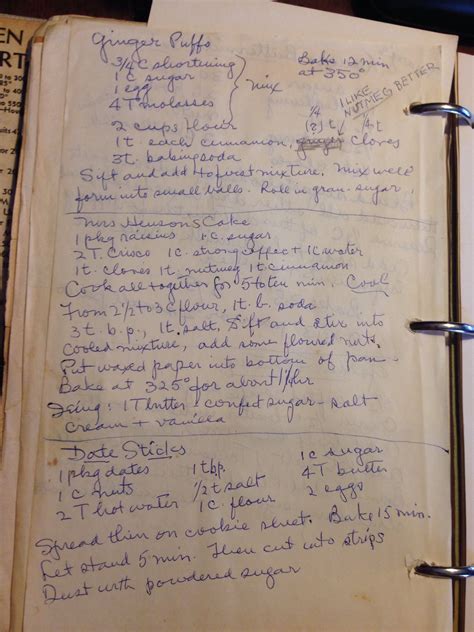 Ginger Puffs
3/4 C shortening
1 C sugar
1 egg
4 T molasses
mix
Bake 12 min
at 350°
I LIKE
NUTMEG BETTER
2 cups flour
1/4
1/4 t
1 t. each cinnamon, ginger cloves
3 t. baking soda
Sift and add to first mixture. Mix well
form into small balls. Roll in gran. sugar.
Mrs Henson's Cake
1 pkg raisins 1 c. sugar
2 T. Crisco 1 c. strong coffee + 1 C water
1 t. cloves 1 t. nutmeg 1 t cinnamon
Cook all together for 5 to ten min. Cool
From 2 1/2 to 3 C flour, 1 t. b. soda
3 t. b.p., 1 t. salt, Sift and stir into
cooled mixture, add some floured nuts.
Put waxed paper into bottom of pan.
Bake at 325° for about 1 1/4 hr
Icing: 1 T butter + confect sugar - salt
cream + vanilla
Date Sticks
1 pkg dates 1 t b.p. 1 c sugar
1 C nuts 1/2 t salt 4 T butter
2 T hot water 1 c. flour 2 eggs
Spread thin on cookie sheet. Bake 15 min.
Let stand 5 min. Then cut into strips
Dust with powdered sugar